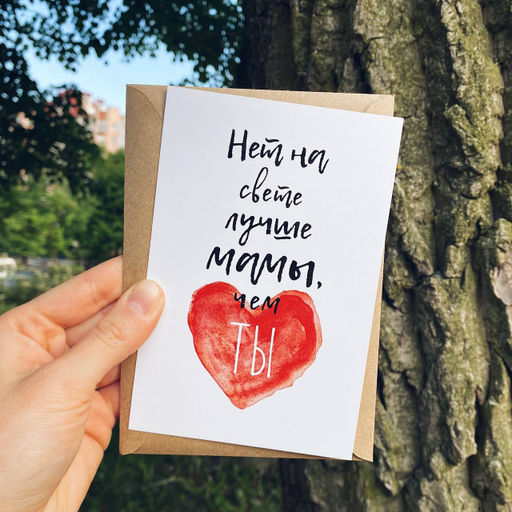 Нет на
свете
лучше
мамы,
чем
ТЫ